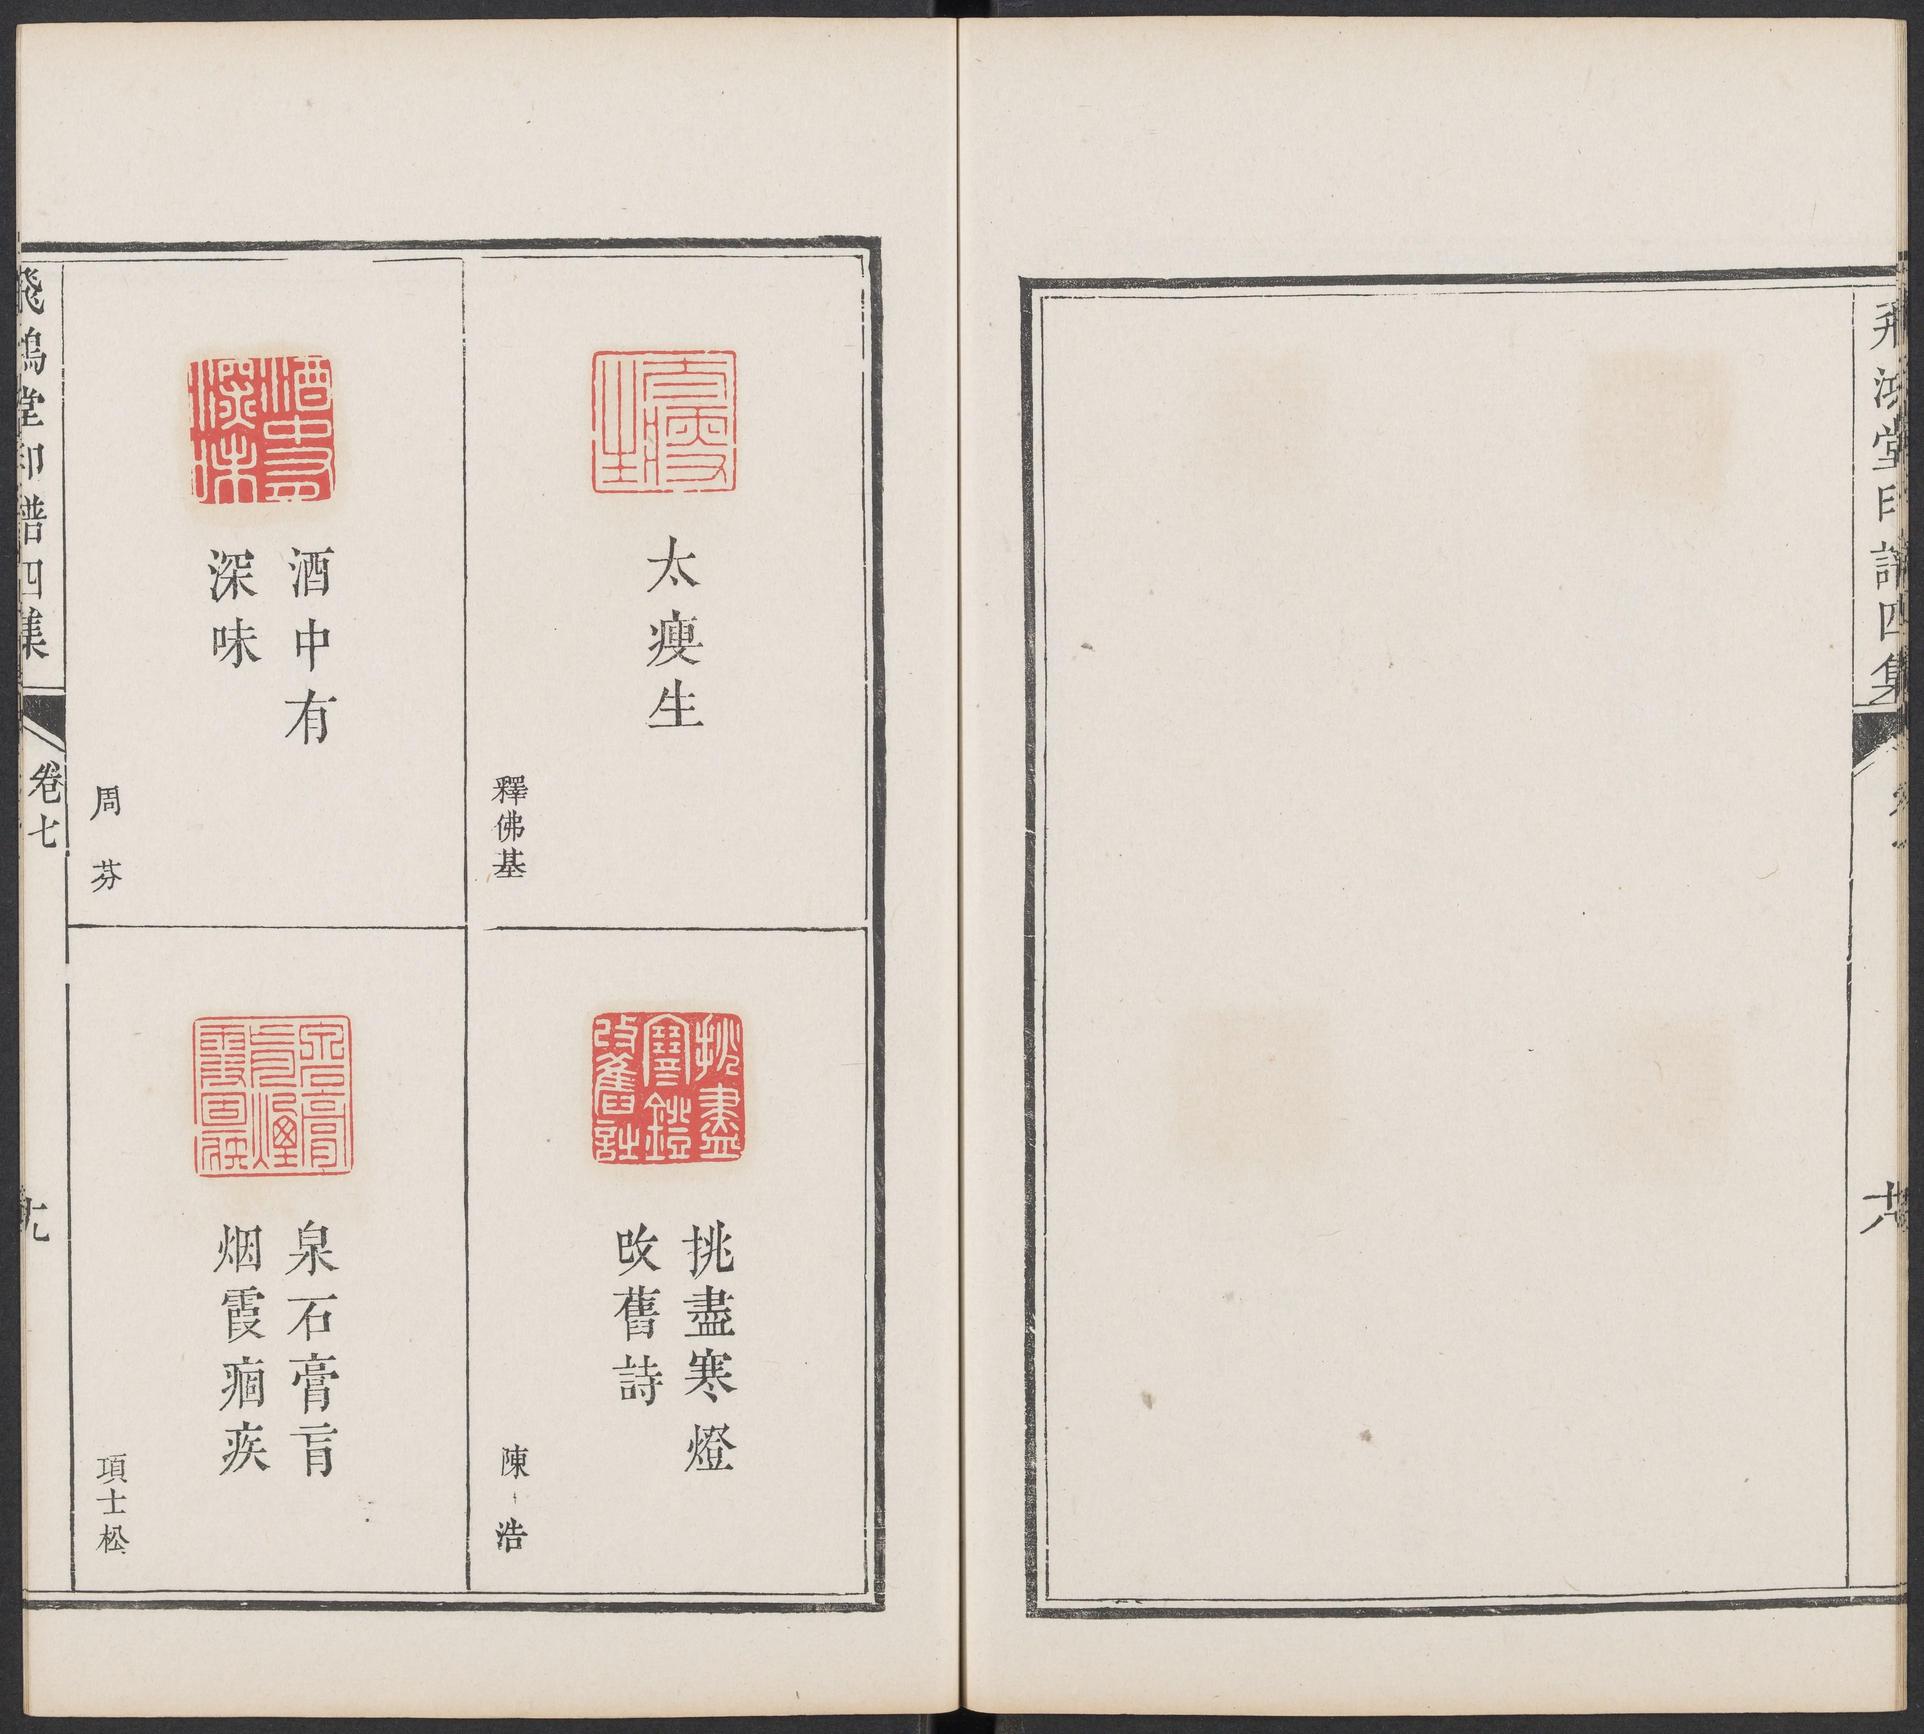 飛鴻堂印譜四集
太瘦生
釋佛基
挑盡寒燈
改舊詩
陳浩
酒中有
深味
周芬
泉石膏肓
烟霞痼疾
項士松
飛鴻堂印譜四集
卷七